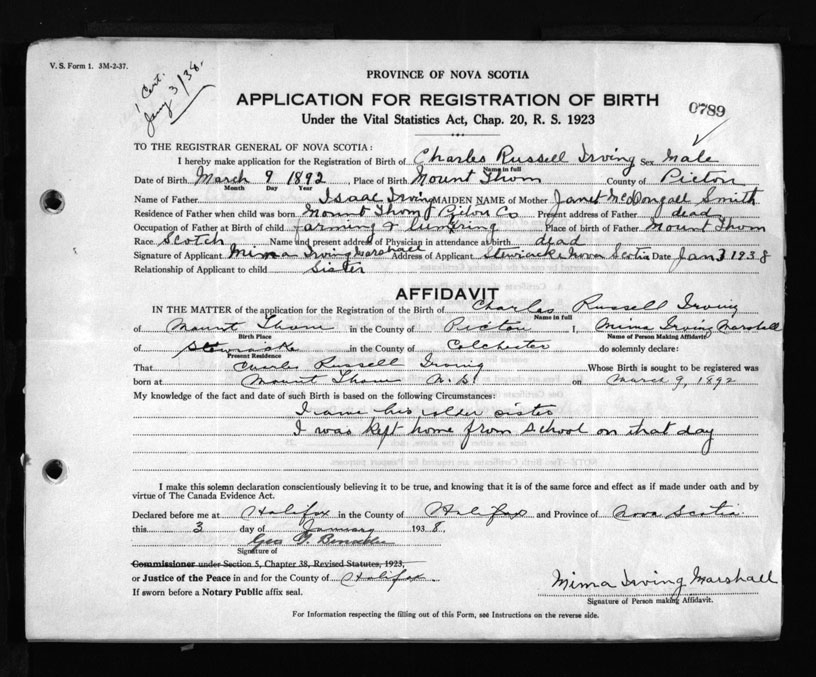 V. S. Form 1. 3M-2-37.
1 Cert.
Jany 3/38.
PROVINCE OF NOVA SCOTIA
APPLICATION FOR REGISTRATION OF BIRTH
0789
Under the Vital Statistics Act, Chap. 20, R. S. 1923
TO THE REGISTRAR GENERAL OF NOVA SCOTIA:
I hereby make application for the Registration of Birth of Charles Russell Irving Sex Male
Name in full
Date of Birth March 9 1892, Place of Birth Mount Thom County of Pictou
Month Day Year
Name of Father Isaac Irving MAIDEN NAME of Mother Janet McDougall Smith
Residence of Father when child was born Mount Thom Pictou Co Present address of Father dead
Occupation of Father at Birth of child farming & lumbring Place of birth of Father Mount Thom
Race Scotch Name and present address of Physician in attendance at birth dead
Signature of Applicant Mima Irving Marshall Address of Applicant Stewiacke Nova Scotia Date Jan 3 1938
Relationship of Applicant to child Sister
AFFIDAVIT
IN THE MATTER of the application for the Registration of Birth of Charles Russell Irving
Name in full
of Mount Thom in the County of Pictou I, Mima Irving Marshall
Birth Place Name of Person Making Affidavit
of Stewiacke in the County of Colchester do solemnly declare:
Present Residence
That Charles Russell Irving Whose Birth is sought to be registered was
born at Mount Thom N. S. on March 9, 1892
My knowledge of the fact and date of such Birth is based on the following Circumstances:
I ame his older sister
I was kept home from school on that day
I make this solemn declaration conscientiously believing it to be true, and knowing that it is of the same force and effect as if made under oath and by
virtue of The Canada Evidence Act.
Declared before me at Halifax in the County of Halifax and Province of Nova Scotia
this 3 day of January 1938.
Geo
Signature of
Commissioner under Section 5, Chapter 38, Revised Statutes, 1923,
or Justice of the Peace in and for the County of Halifax.
If sworn before a Notary Public affix seal.
Mima Irving Marshall
Signature of Person making Affidavit.
For Information respecting the filling out of this Form, see Instructions on the reverse side.